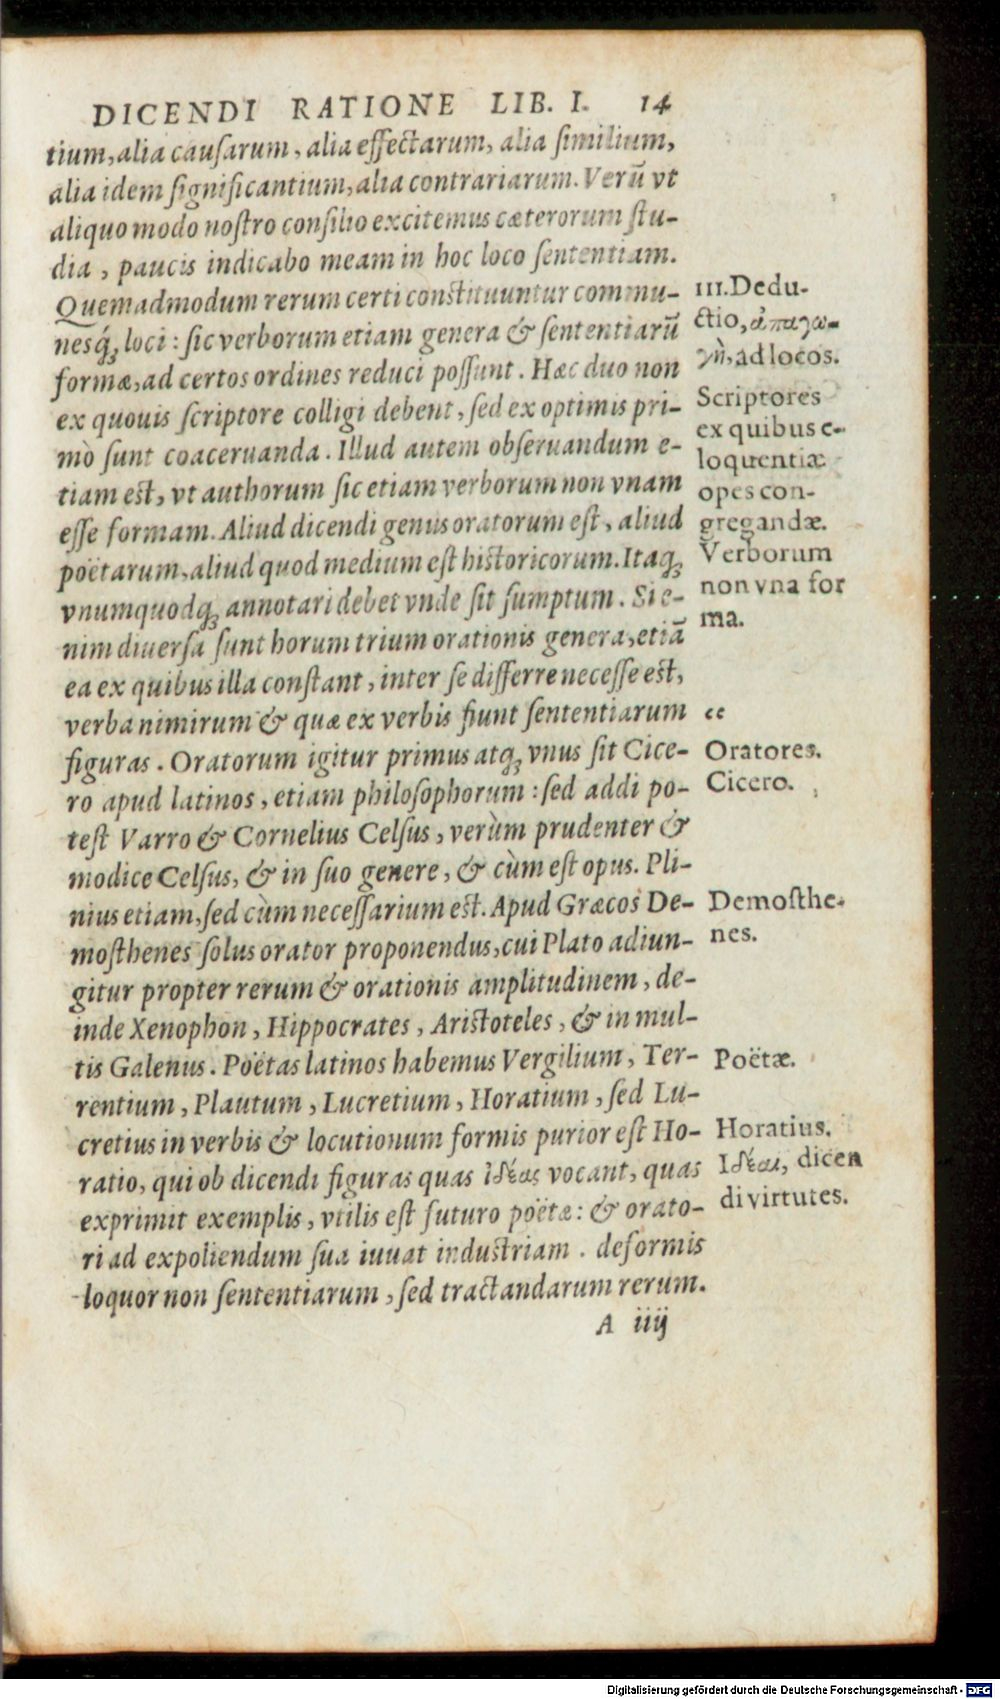 DICENDI RATIONE LIB. I. 14
tium, alia causarum, alia effectarum, alia similium,
alia idem significantium, alia contrariarum. Verū vt
aliquo modo nostro consilio excitemus cæterorum stu-
dia, paucis indicabo meam in hoc loco sententiam.
Quemadmodum rerum certi constituuntur commu-
nesq́ꝫ loci: sic verborum etiam genera & sententiarū
formæ, ad certos ordines reduci possunt. Hæc duo non
ex quouis scriptore colligi debent, sed ex optimis pri-
mò sunt coaceruanda. Illud autem obseruandum e-
tiam est, vt authorum sic etiam verborum non vnam
esse formam. Aliud dicendi genus oratorum est, aliud
poëtarum, aliud quod medium est historicorum. Itaqꝫ
vnumquodqꝫ annotari debet vnde sit sumptum. Si e-
nim diuersa sunt horum trium orationis genera, etiā
ea ex quibus illa constant, inter se differre necesse est,
verba nimirum & quæ ex verbis fiunt sententiarum
figuras. Oratorum igitur primus atqꝫ vnus sit Cice-
ro apud latinos, etiam philosophorum: sed addi po-
test Varro & Cornelius Celsus, verùm prudenter &
modice Celsus, & in suo genere, & cùm est opus. Pli-
nius etiam, sed cùm necessarium est. Apud Græcos De-
mosthenes solus orator proponendus, cui Plato adiun-
gitur propter rerum & orationis amplitudinem, de-
inde Xenophon, Hippocrates, Aristoteles, & in mul-
tis Galenus. Poëtas latinos habemus Vergilium, Ter-
rentium, Plautum, Lucretium, Horatium, sed Lu-
cretius in verbis & locutionum formis purior est Ho-
ratio, qui ob dicendi figuras quas ἰδέας vocant, quas
exprimit exemplis, vtilis est futuro poëtæ: & orato-
ri ad expoliendum sua iuuat industriam. de formis
loquor non sententiarum, sed tractandarum rerum.
A iiij
III. Dedu-
ctio, ἀπαγω-
γὴ, ad locos.
Scriptores
ex quibus e-
loquentiæ
opes con-
gregandæ.
Verborum
non vna for
ma.
“
Oratores.
Cicero.
Demosthe-
nes.
Poëtæ.
Horatius.
Ιδέαι, dicen
di virtutes.
Digitalisierung gefördert durch die Deutsche Forschungsgemeinschaft - DFG